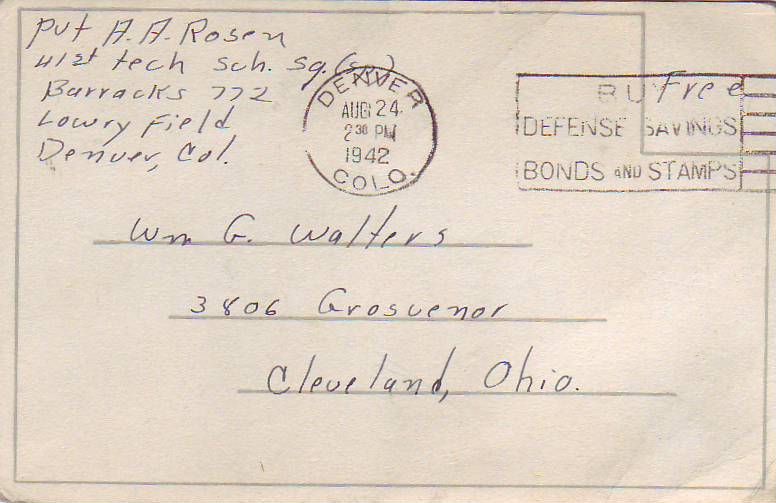 Pvt A. A. Rosen
41st tech sch. sq. (sp.)
Barracks 772
Lowry Field
Denver, Col.
DENVER
AUG 24
2 30 PM
1942
COLO.
Free
BUY
DEFENSE SAVINGS
BONDS AND STAMPS
Wm G. Walters
3806 Grosvenor
Cleveland, Ohio.